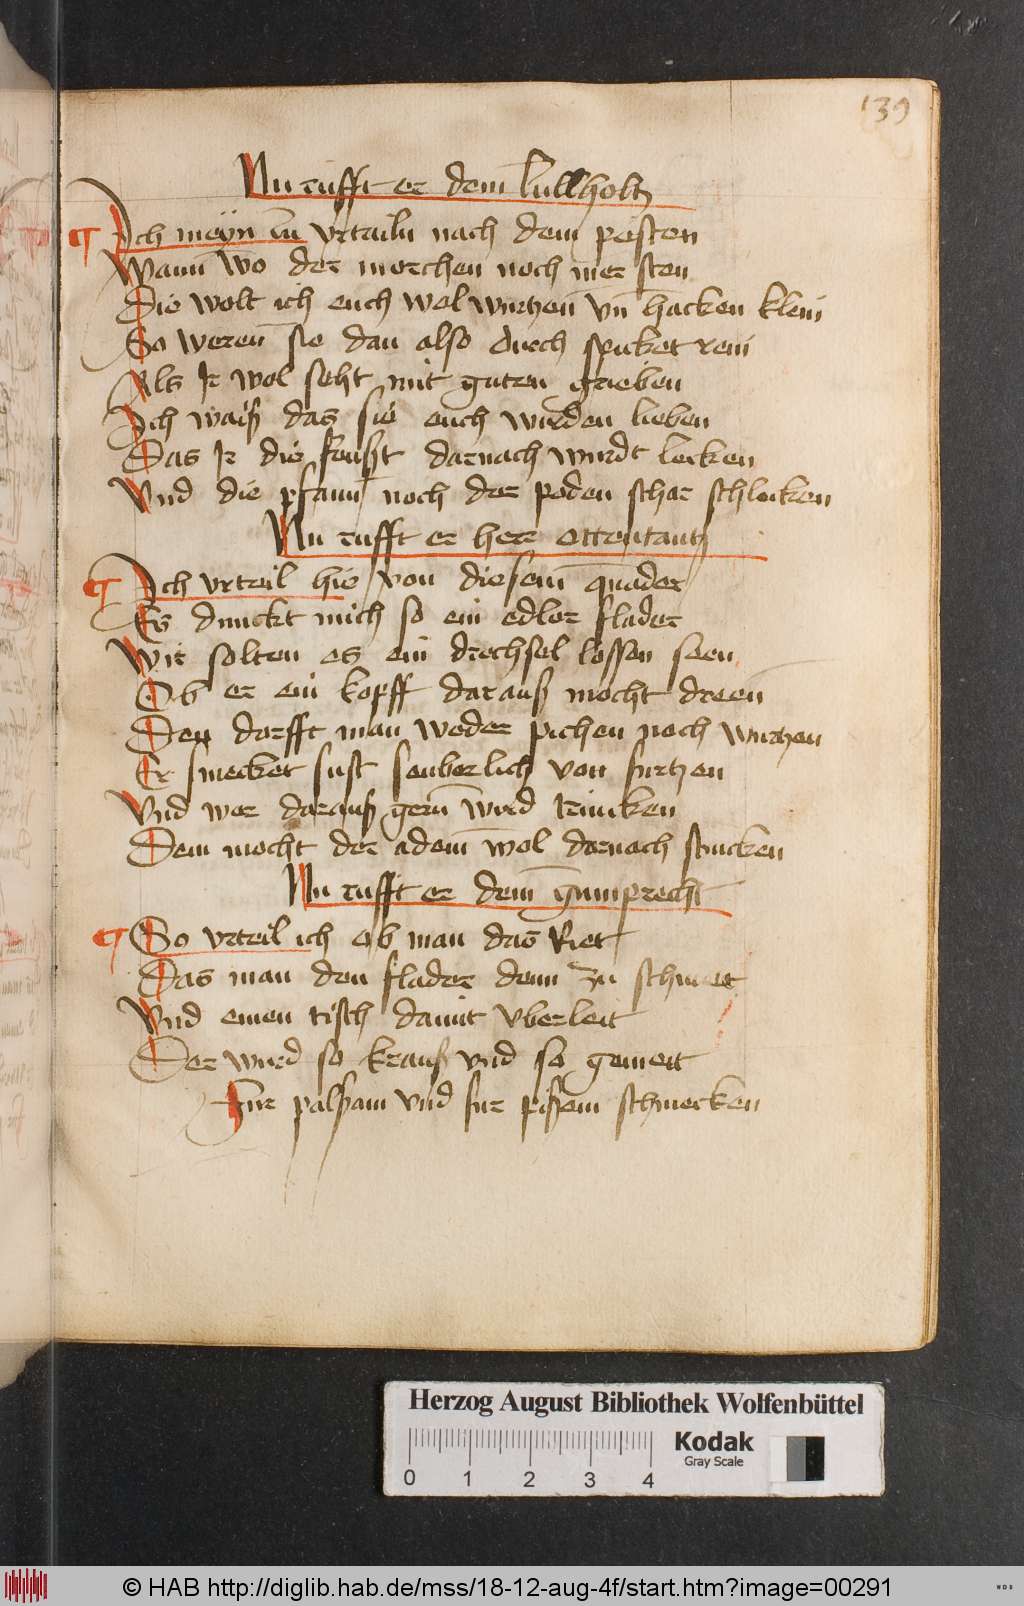 139
Nu rufft er dem lullholtz
¶ Ich meyn zu vrtailn nach dem pesten
Wann wo der morchen noch mer sten
Die wolt ich euch wol wurtzen vn̄ hacken klein
So weren sie dan also durch spicket rein
Als Ir wol seht mit guten grieben
Ich waiß das sie euch wurden lieben
Das Ir die feust darnach wurdt lecken
Vnd die pfann noch der poden schar schlecken
Nu rufft er herr ottentantz
¶ Ich vrteil hie von diesem quader
Es dunckt mich so ein edler flader
Wir solten es ein drechsel lossen seen
Ob er ein kopff darauß mocht dreen
Den dorfft man weder pichen noch wurtzen
Er smecket sust seuberlich von furtzen
Vnd wer darauß gern wurd trincken
Dem mocht der adem wol darnach stincken
Nu rufft er dem gumprecht
¶ So vrteil ich ob man das Riet
Das man den flader denn zu schniet
Vnd einen tisch damit vberleit
Der wurd so krauß vnd so gemeit
Fur palsam vnd fur pisem schmecken
Herzog August Bibliothek Wolfenbüttel
0 1 2 3 4
Kodak
Gray Scale
© HAB http://diglib.hab.de/mss/18-12-aug-4f/start.htm?image=00291